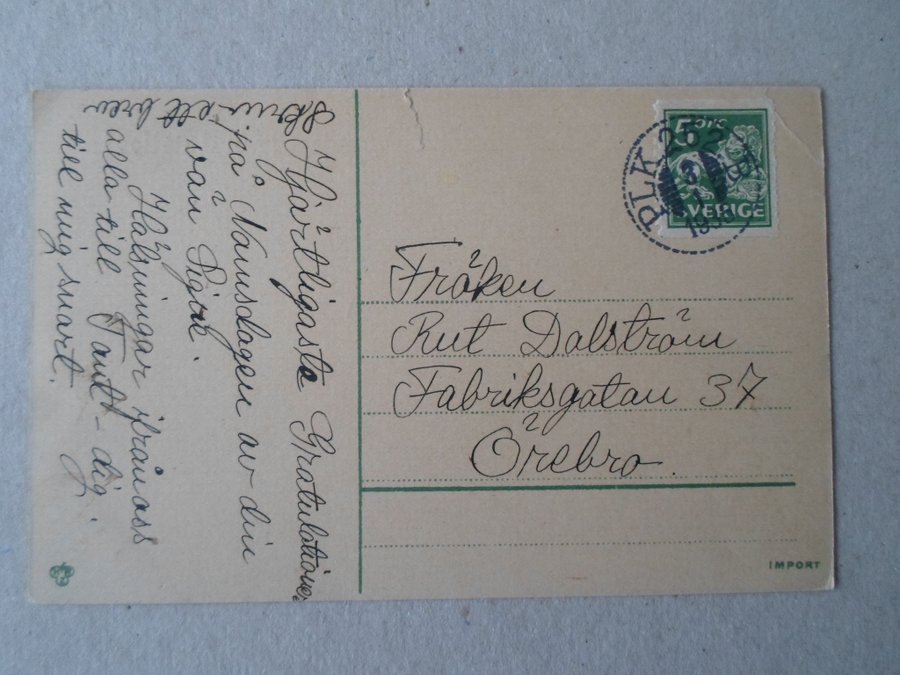 Hjärtligaste Gratulationer
på Namsdagen av din
vän
Hälsningar från oss
alla till Tant - dig.
Skriv ett brev
till mig snart.
5 ÖRE
SVERIGE
PLK 262
Fröken
Rut Dalström
Fabriksgatan 37
Örebro.
IMPORT